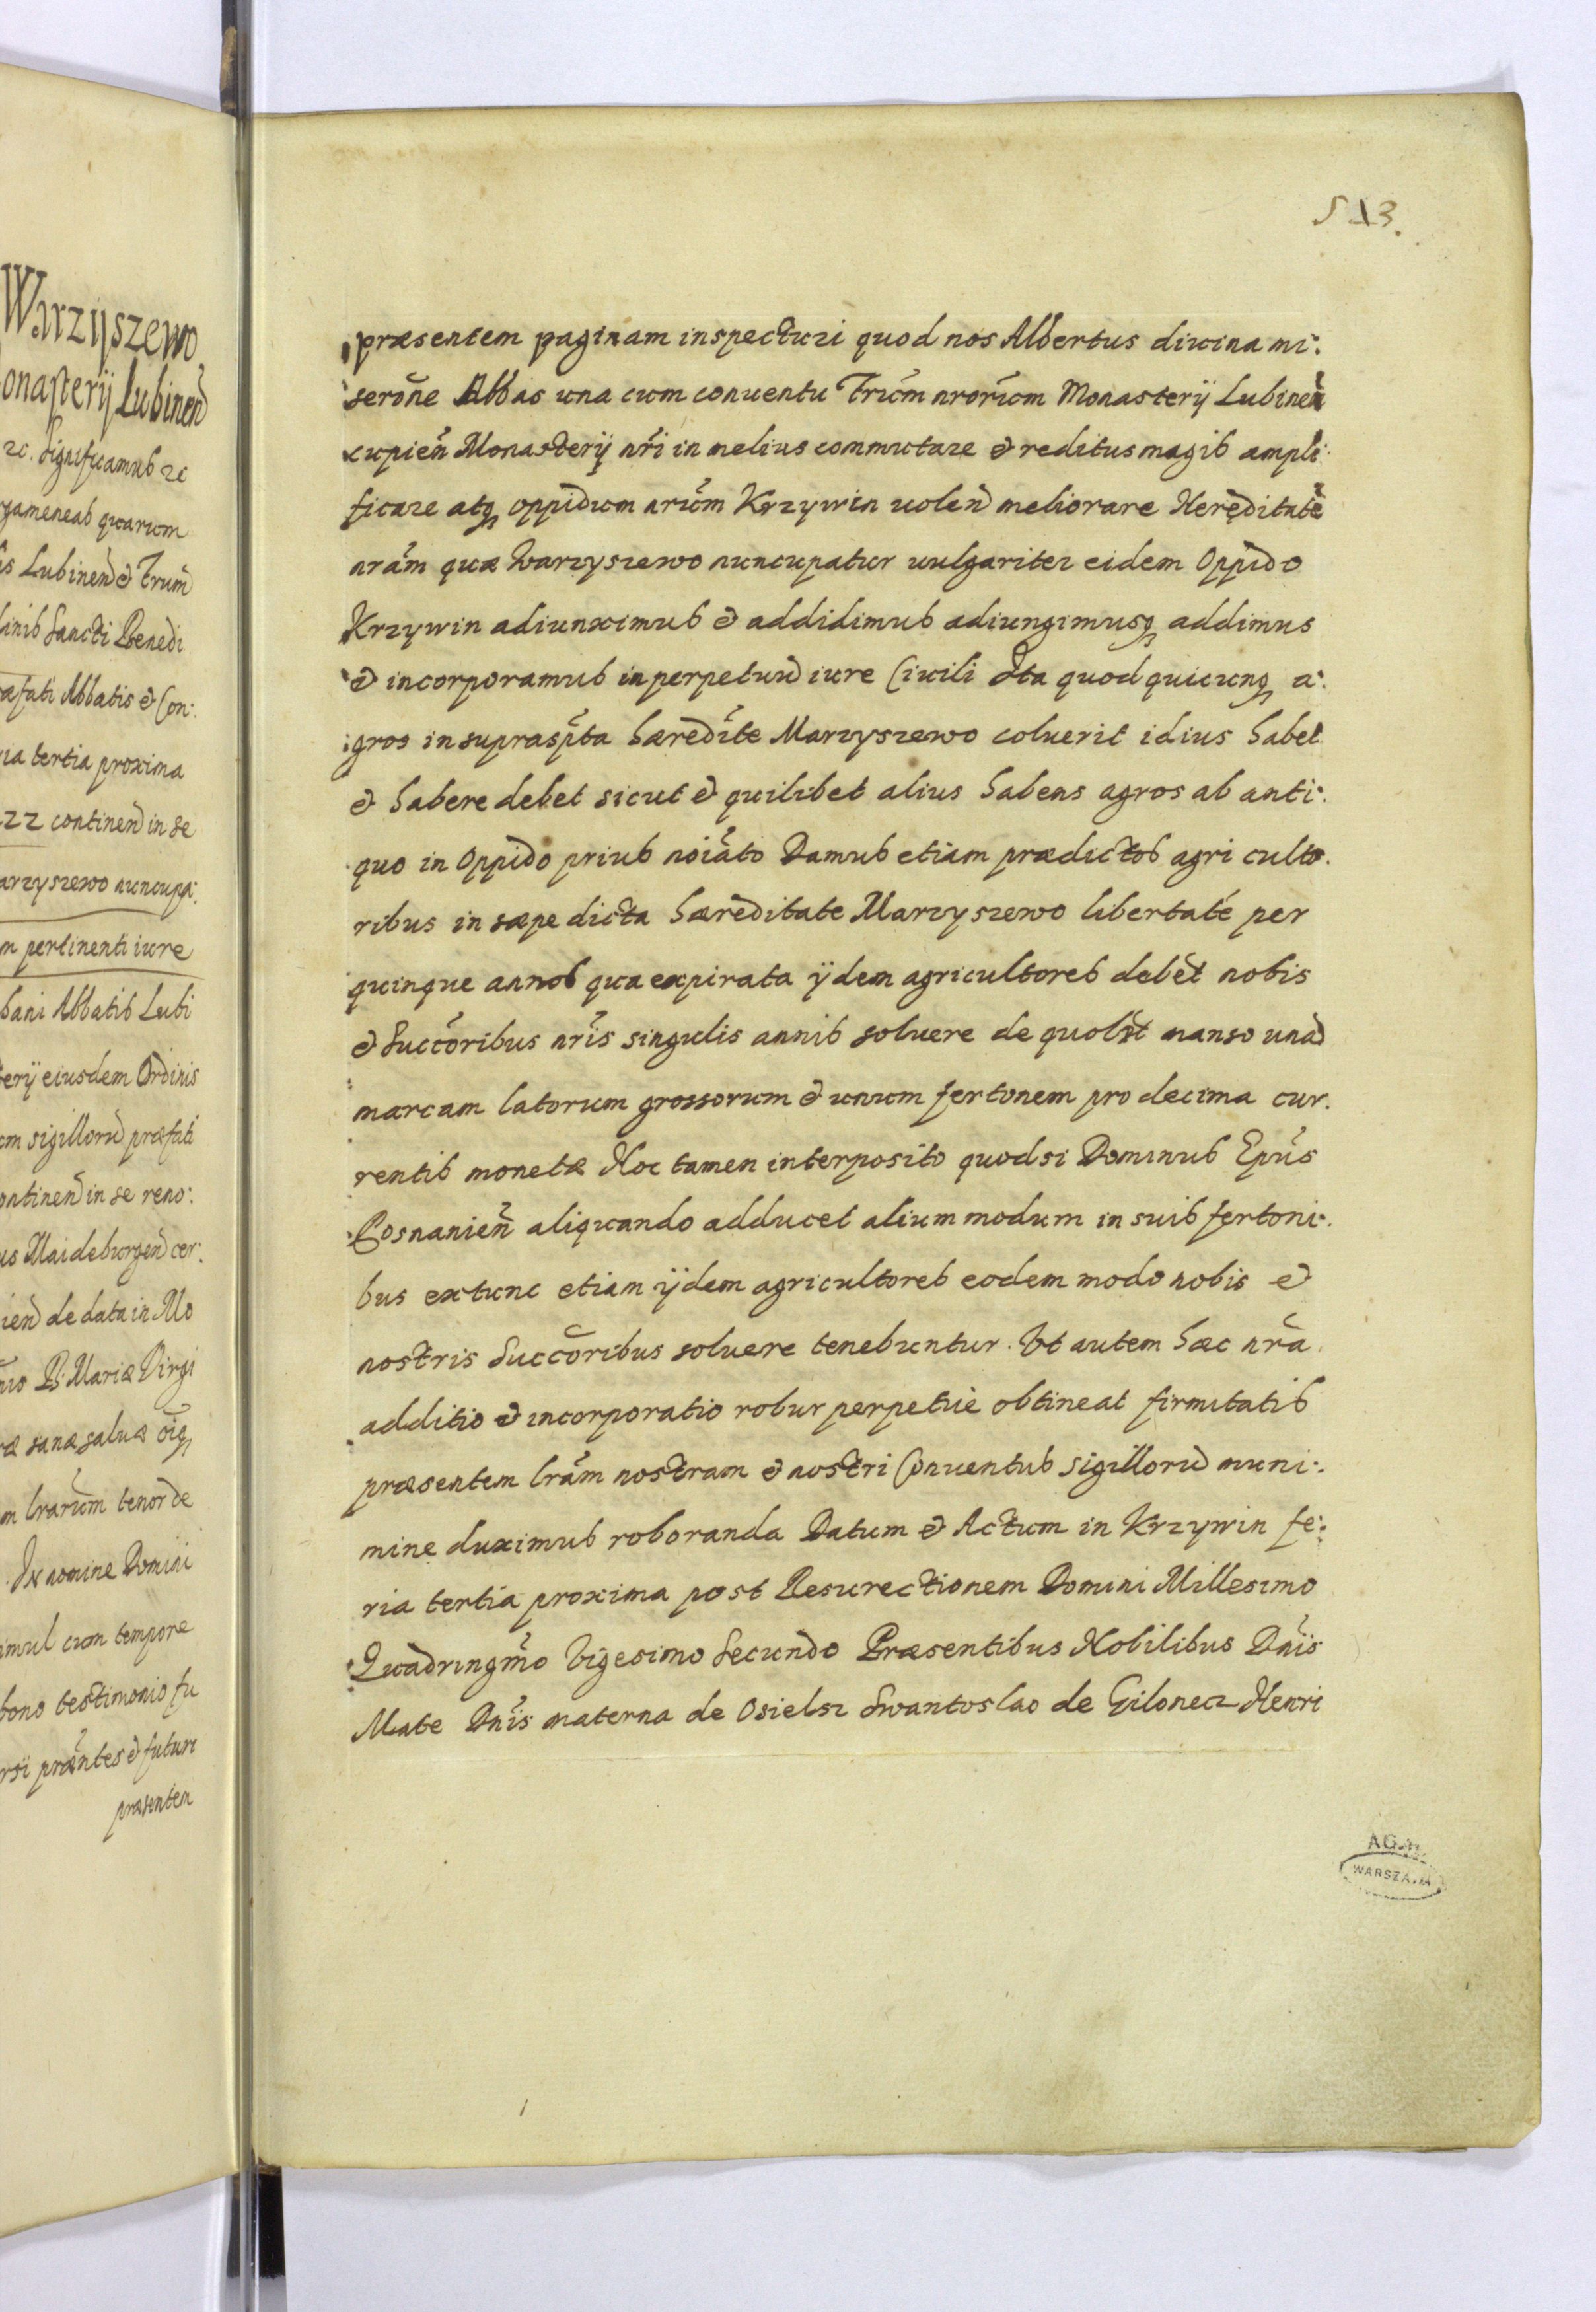 Warzyszewo
onasterij Lubinen
2c. Significamus 2c
rgameneas quarum
is Lubinen et Frum
linis Sancti Benedi
æfati Abbatis et Con:
ria tertia proxima
22 continen in se
arzyszewo nuncupa:
m pertinenti iure
bani Abbatis Lubi
erij eiusdem Ordinis
om sigillorũ præfati
ontinen in se reno:
us Maideburgen cer:
ien de data in Mo
nio B: Mariæ Virgi
ræ sanæ saluæ oĩq
m lrarũm tenor de
In nomine Domini
imul cum tempore
bono testimonio fu
rsi præñtes et futuri
præsentem
513.
præsentem paginam inspecturi quod nos Albertus diuina mi:
serõne Abbas una cum conuentu Frũm nrorũm Monasterij Lubineñ
cupieñ Monasterij nr̃i in melius commutare et reditus magis ampli:
ficare atq oppidum nrũm Krzywin uoleñ meliorare Hereditatẽ
nrãm quæ Warzyszewo nuncupatur uulgariter eidem Oppido
Krzywin adiunximus et addidimus adiungimusq addimus
et incorporamus in perpetuũ iure Ciuili Ita quod quicunq a:
gros in supras̃pta hæredĩte Marzyszewo coluerit id ius habet
et habere debet sicut et quilibet alius habens agros ab anti:
quo in Oppido prius noĩato Damus etiam prædictos agri culto:
ribus in sæpe dicta hæreditate Marzyszewo libertatẽ per
quinque annos qua expirata ijdem agricultores debẽt nobis
et Succõribus nr̃is singulis annis soluere de quolb̃t manso unã
marcam latorum grossorum et unum fertonem pro decima cur:
rentis monetæ Hoc tamen interposito quod si Dominus Ep̃us
Posnanieñ aliquando adducet alium modum in suis fertoni:
bus extunc etiam ijdem agricultores eodem modo nobis et
nostris Succõribus soluere tenebuntur. Vt autem hæc nr̃a
additio et incorporatio robur perpetuè obtineat firmitatis
præsentem lrãm nostram et nostri Conuentus sigillorũ muni:
mine duximus roboranda Datum et Actum in Krzywin fe:
ria tertia proxima post Resurectionem Domini Millesimo
Quadringm̃o Vigesimo Secundo Præsentibus Nobilibus Dñis
Mate Dñis materna de Osielsz Swantoslao de Gilonecz Henri
AGAD
WARSZAWA